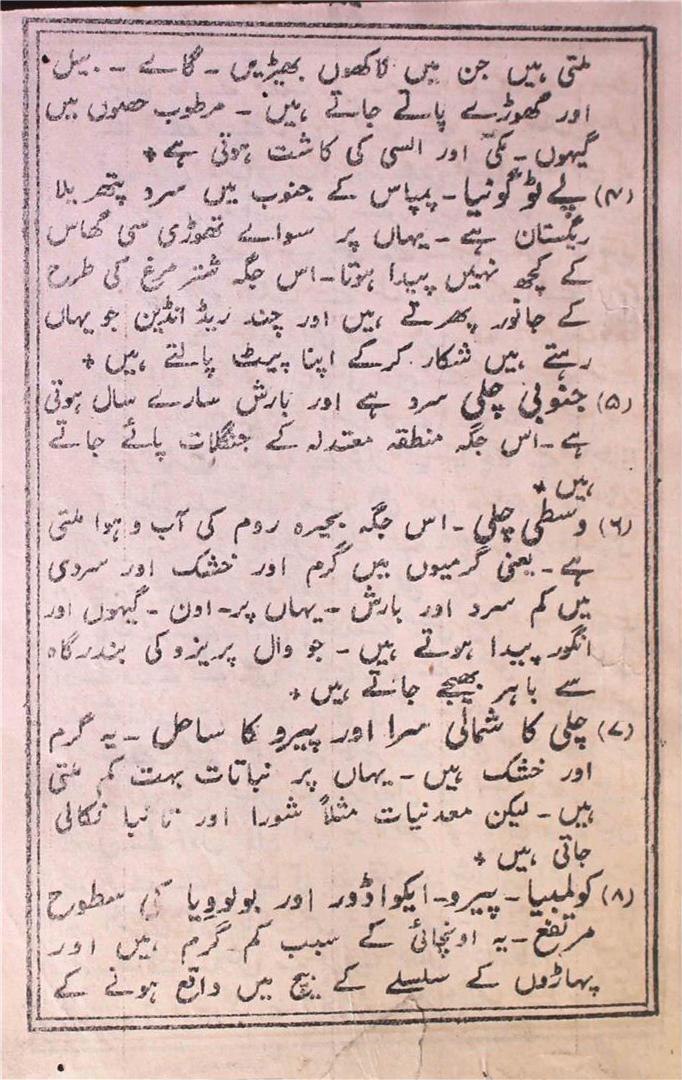 ملتی ہیں جن میں لاکھوں بھیڑیں ۔ گائے ۔ بیل
اور گھوڑے پائے جاتے ہیں ۔ مرطوب حصوں میں
گیہوں ۔ مکئی اور السی کی کاشت ہوتی ہے *
(۴) پے ٹو گونیا ۔ پمپاس کے جنوب میں سرد پتھریلا
ریگستان ہے ۔ یہاں پر سوائے تھوڑی سی گھاس
کے کچھ نہیں پیدا ہوتا ۔ اس جگہ شتر مرغ کی طرح
کے جانور پھرتے ہیں اور چند ریڈ انڈین جو یہاں
رہتے ہیں شکار کرکے اپنا پیٹ پالتے ہیں *
(۵) جنوبی چلی سرد ہے اور بارش سارے سال ہوتی
ہے ۔ اس جگہ منطقہ معتدلہ کے جنگلات پائے جاتے
ہیں *
(۶) وسطی چلی ۔ اس جگہ بحیرہ روم کی آب و ہوا ملتی
ہے ۔ یعنی گرمیوں میں گرم اور خشک اور سردی
میں کم سرد اور بارش ۔ یہاں پر ۔ اون ۔ گیہوں اور
انگور پیدا ہوتے ہیں ۔ جو وال پریزو کی بندرگاہ
سے باہر بھیجے جاتے ہیں *
(۷) چلی کا شمالی سرا اور پیرو کا ساحل ۔ یہ گرم
اور خشک ہیں ۔ یہاں پر نباتات بہت کم ملتی
ہیں ۔ لیکن معدنیات مثلاً شورا اور تانبا نکالی
جاتی ہیں *
(۸) کولمبیا ۔ پیرو ۔ ایکواڈور اور بولوویا کی سطوح
مرتفع ۔ یہ اونچائی کے سبب کم گرم ہیں اور
پہاڑوں کے سلسلے کے بیچ میں واقع ہونے کے